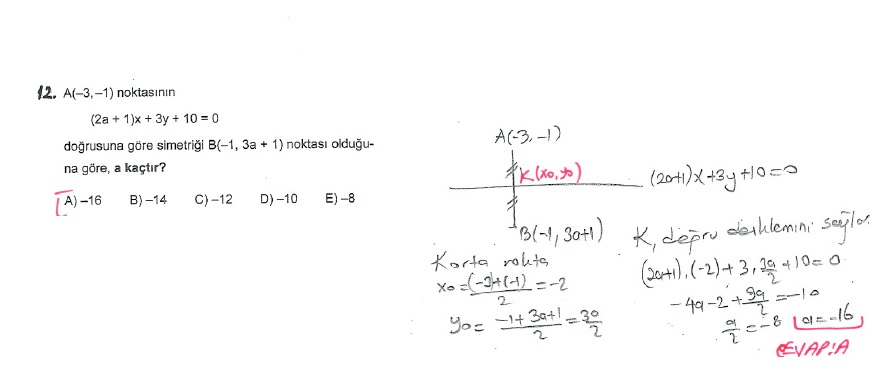 12. A(–3, –1) noktasının
(2a + 1)x + 3y + 10 = 0
doğrusuna göre simetriği B(–1, 3a + 1) noktası olduğu-
na göre, a kaçtır?
A) –16 B) –14 C) –12 D) –10 E) –8
A(-3, -1)
K(x0, y0)
(2a+1)x+3y+10=0
B(-1, 3a+1)
K orta nokta
x0 = (-3)+(-1) / 2 = -2
y0 = -1+3a+1 / 2 = 3a/2
K, doğru denklemini sağlar
(2a+1).(-2)+3.3a/2+10=0
-4a-2+9a/2=-10
a/2=-8 a=-16
CEVAP:A